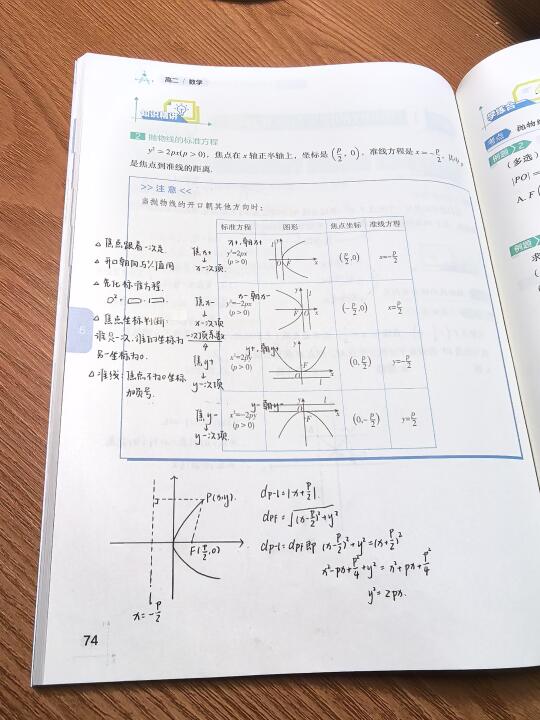 高二 / 数学
知识精讲
2 抛物线的标准方程
y²=2px(p>0),焦点在 x 轴正半轴上,坐标是(p/2, 0),准线方程是 x=-p/2,
是焦点到准线的距离.
>> 注意 <<
当抛物线的开口朝其他方向时:
标准方程 图形 焦点坐标 准线方程
x+朝x+
y²=2px (p>0) (p/2, 0) x=-p/2
y²=-2px (p>0) x-朝x- (-p/2, 0) x=p/2
x²=2py (p>0) y+,朝y+ (0, p/2) y=-p/2
x²=-2py (p>0) y-朝y- (0, -p/2) y=p/2
△ 焦点跟着一次走
△ 开口朝向与
△ 先化标准方程
□²=□·□.
△ 焦点坐标判断:
谁只一次,谁的坐标为 一次项系数/4
另一坐标为0.
△ 准线:焦点不为0坐标
加负号.
焦x+
↓
x一次项.
焦x-
↓
x一次项
焦y+
↓
y一次项
焦y-
↓
y一次项.
P(x,y).
F(p/2,0)
x=-p/2
dp-l=|x+p/2|.
dPF=√((x-p/2)²+y²)
dp-l=dPF即 (x-p/2)²+y²=(x+p/2)²
x²-px+p²/4+y²=x²+px+p²/4
y²=2px.
6
74
学练合
考点
抛物线
例题 2
(多选)
|PO|=
A. F(
例题
求